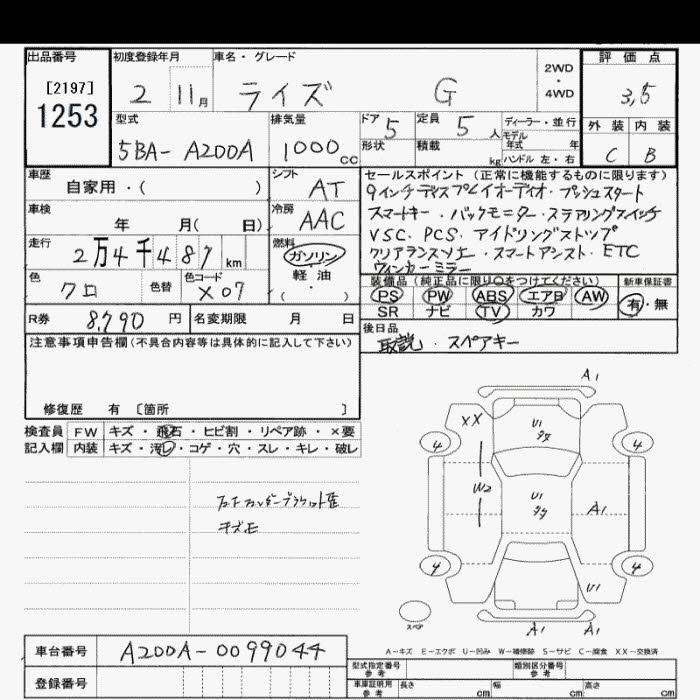 出品番号 初度登録年月 車名・グレード 2WD・4WD 評価点
[2197]
1253
2 11月 ライズ G 3,5
型式 排気量 ドア 5 定員 5人 ディーラー・並行 外装 内装
5BA- A200A 1000cc 形状 積載 kg モデル年式 年 ハンドル 左・右 C B
車歴 シフト セールスポイント(正常に機能するものに限ります)
自家用・( ) AT 9インチディスプレイオーディオ・プッシュスタート
車検 冷房 スマートキー・バックモニター・ステアリングスイッチ
年 月( 日) AAC VSC. PCS. アイドリングストップ
走行 燃料 クリアランスソナー・スマートアシスト・ETC
2万4千487km ガソリン ウィンカーミラー
軽油・( )
色 色替 色コード 装備品(純正品に限り○をつけてください) 新車保証書
クロ X07 PS PW ABS エアB AW 有・無
SR ナビ TV カワ
R券 8,790円 名変期限 月 日 後日品
注意事項申告欄(不具合内容等は具体的に記入して下さい) 取説・スペアキー
修復歴 有 〔箇所 〕
検査員 FW キズ・飛石・ヒビ割・リペア跡・×要
記入欄 内装 キズ・汚レ・コゲ・穴・スレ・キレ・破レ
キズ正
A1
XX U1 タタ
4 4
W2 U1 タタ A1
4 4
U1
スペア A1 A1
A-キズ E-エクボ U-凹み W-補修跡 S-サビ C-腐食 XX-交換済
車台番号 A200A-0099044
型式指定番号 参考 類別区分番号 参考
登録番号
車庫証明用 参考 長さ cm 幅 cm 高さ cm